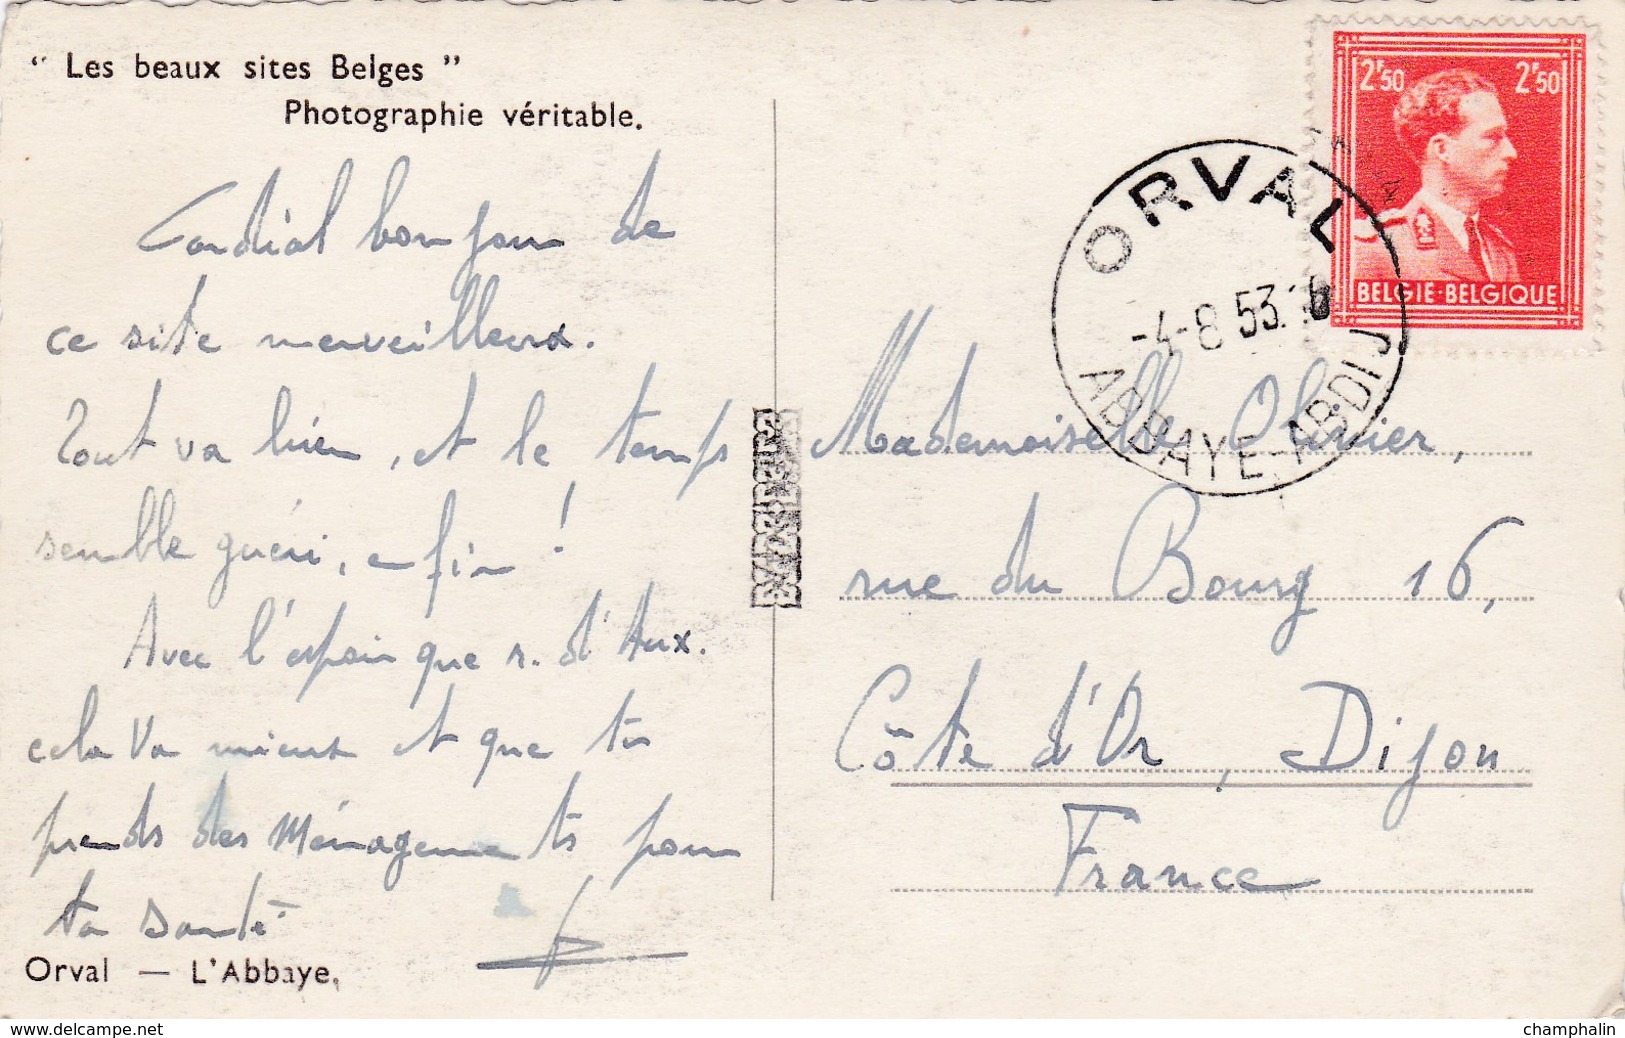 “ Les beaux sites Belges ”
Photographie véritable.
Cordial bonjour de
ce site merveilleux.
Tout va bien, et le temps
semble guéri, enfin !
Avec l'espoir que r. d'Aux.
cela va mieux et que tu
prends des ménagements pour
ta santé
Orval — L'Abbaye.
2F50 2F50
BELGIE-BELGIQUE
ORVAL
-4-8 53
ABBAYE-ABDIJ
Mademoiselle Olivier,
rue du Bourg 16,
Côte d'Or, Dijon
France
www.delcampe.net
champhalin